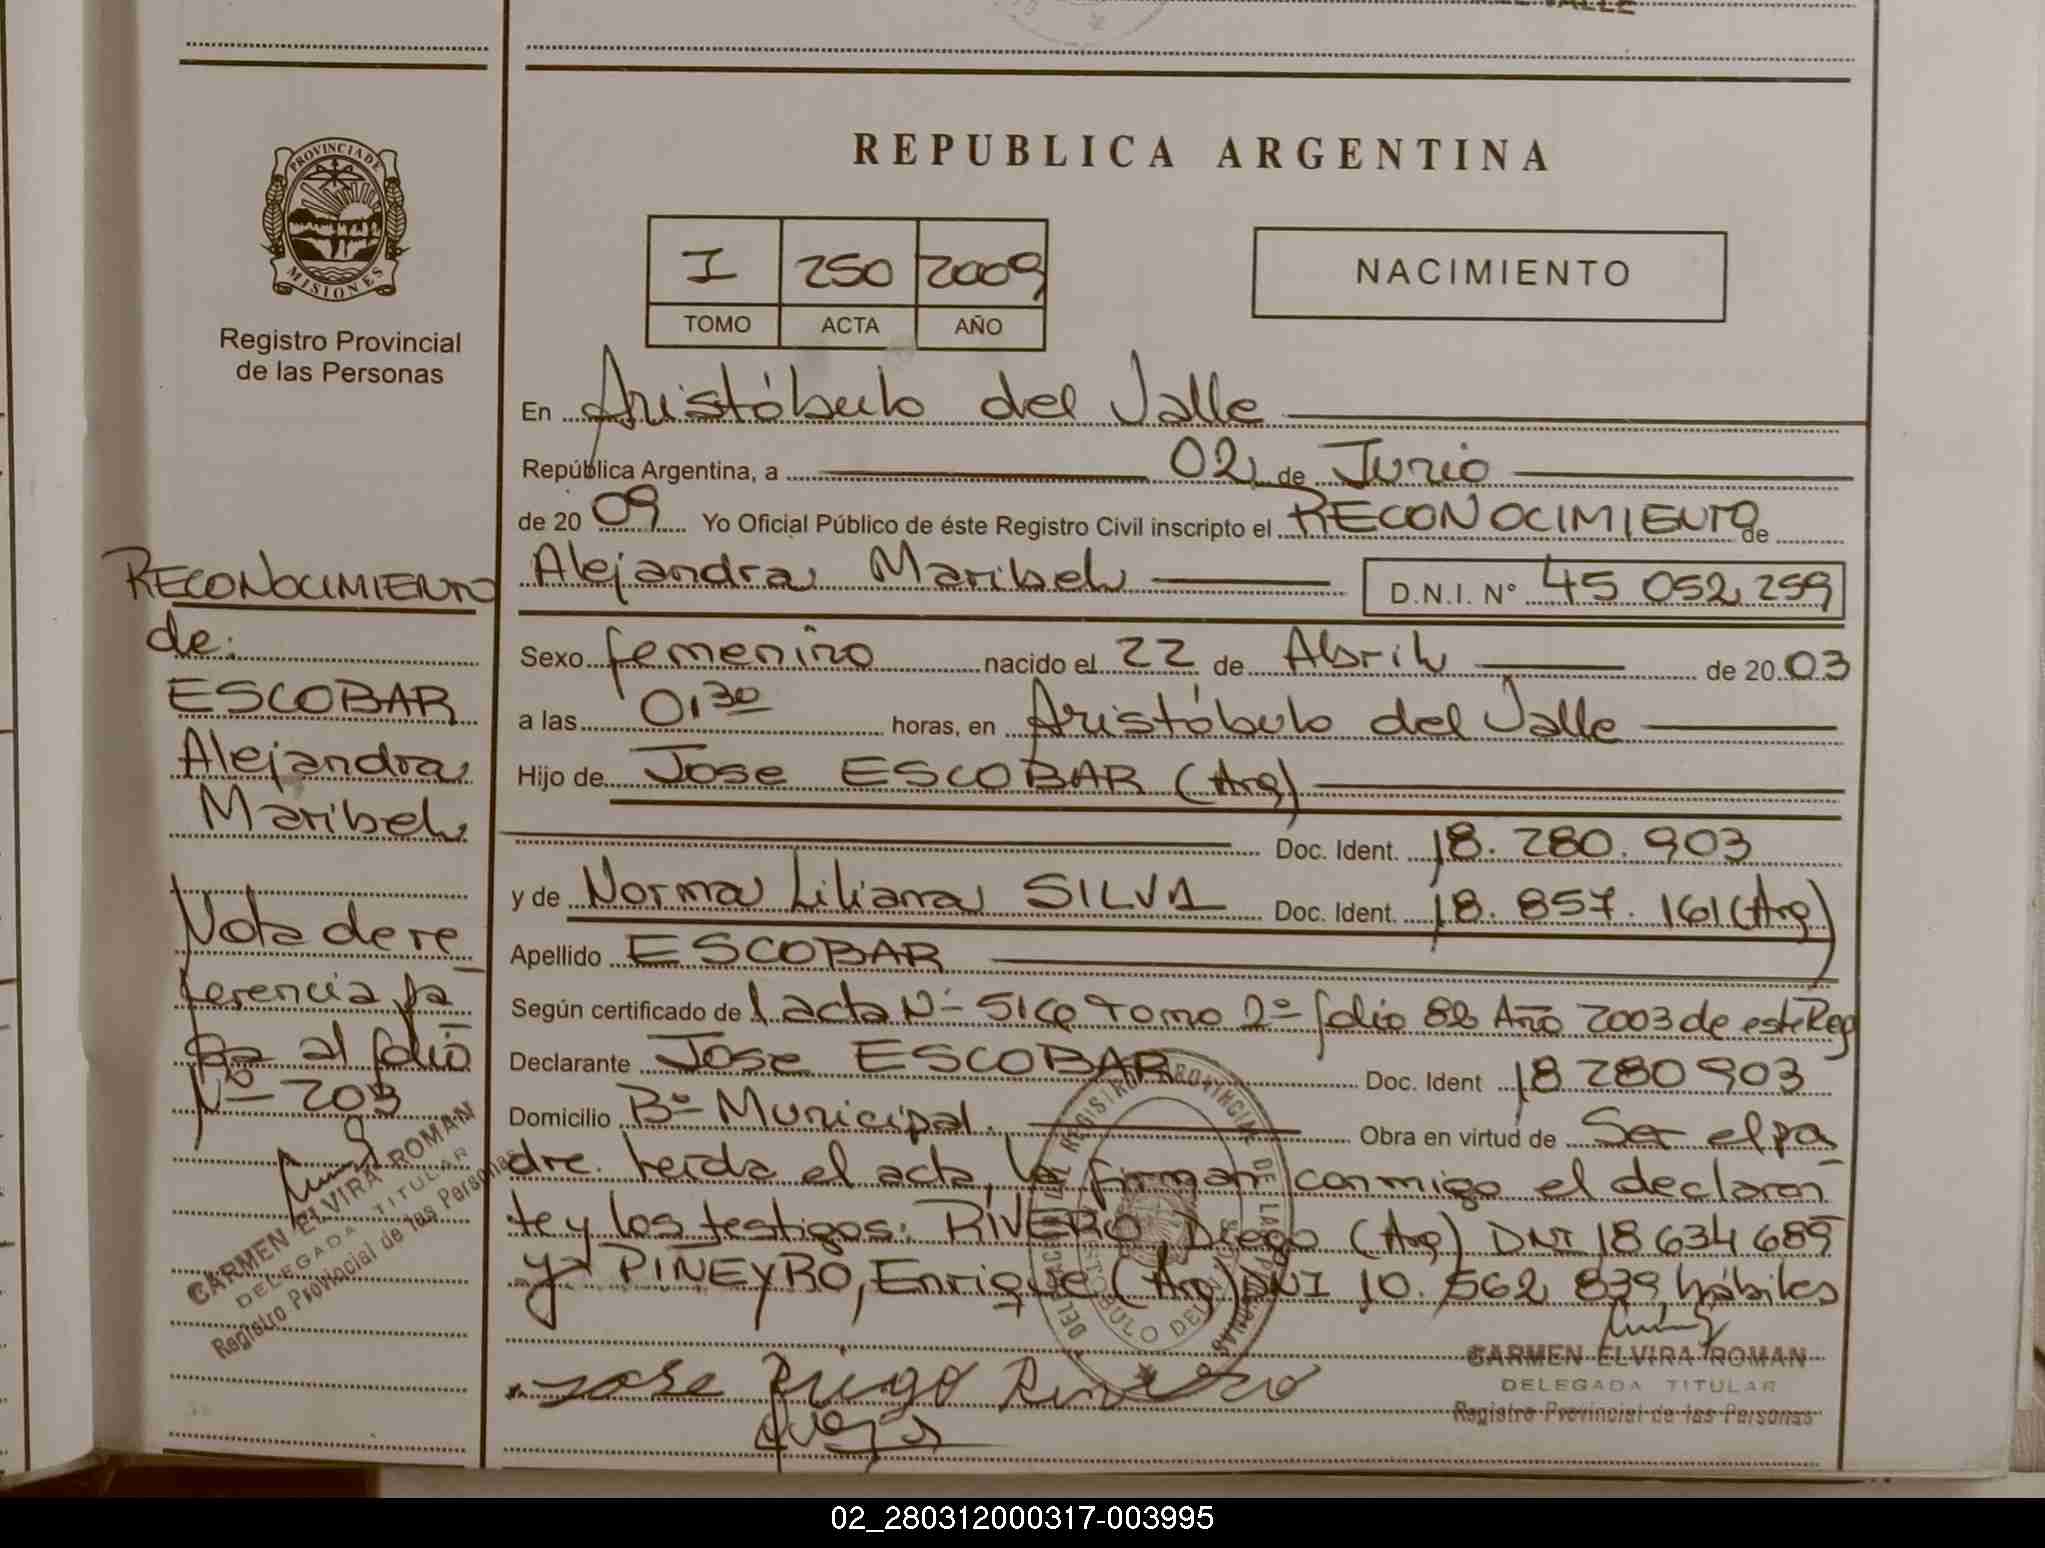 VALLE
PROVINCIA DE
MISIONES
Registro Provincial
de las Personas
RECONOCIMIENTO
de:
ESCOBAR
Alejandra
Maribel.
Nota de re
ferencia pa
sa al folio
Nº 203
CARMEN ELVIRA ROMAN
DELEGADA TITULAR
Registro Provincial de las Personas
REPUBLICA ARGENTINA
I 250 2009
TOMO ACTA AÑO
NACIMIENTO
En Aristóbulo del Valle
República Argentina, a 02 de Junio
de 2009 Yo Oficial Público de éste Registro Civil inscripto el RECONOCIMIENTO de
Alejandra Maribel D.N.I. Nº 45 052 259
Sexo femenino nacido el 22 de Abril de 2003
a las 01 30 horas, en Aristóbulo del Valle
Hijo de Jose ESCOBAR (Arg)
Doc. Ident. 18.280.903
y de Norma Liliana SILVA Doc. Ident. 18.857.161 (Arg)
Apellido ESCOBAR
Según certificado de l acta Nº Tomo 2º folio 82 Año 2003 de este Reg
Declarante Jose ESCOBAR Doc. Ident 18 280 903
Domicilio Bº Municipal. Obra en virtud de Ser el pa
dre. Leída el acta, la firman conmigo el declaran
te y los testigos: RIVERO, Diego (Arg) DNI 18 634 689
y PIÑEYRO, Enrique (Arg) DNI 10.562 839 hábiles
Jose Diego Rivero
CARMEN ELVIRA ROMAN
DELEGADA TITULAR
Registro Provincial de las Personas
02_280312000317-003995